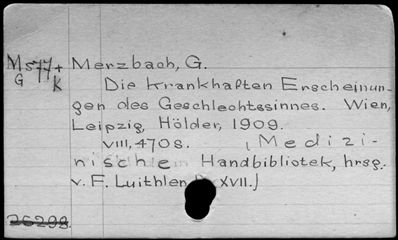 M577+ Merzbach, G.
G K
Die krankhaften Erscheinun-
gen des Geschlechtssinnes. Wien,
Leipzig, Hölder, 1909.
VIII, 470 S. (Medizi-
nische Handbibliotek, hrsg.
v. F. Luithlen XVII.)
26298